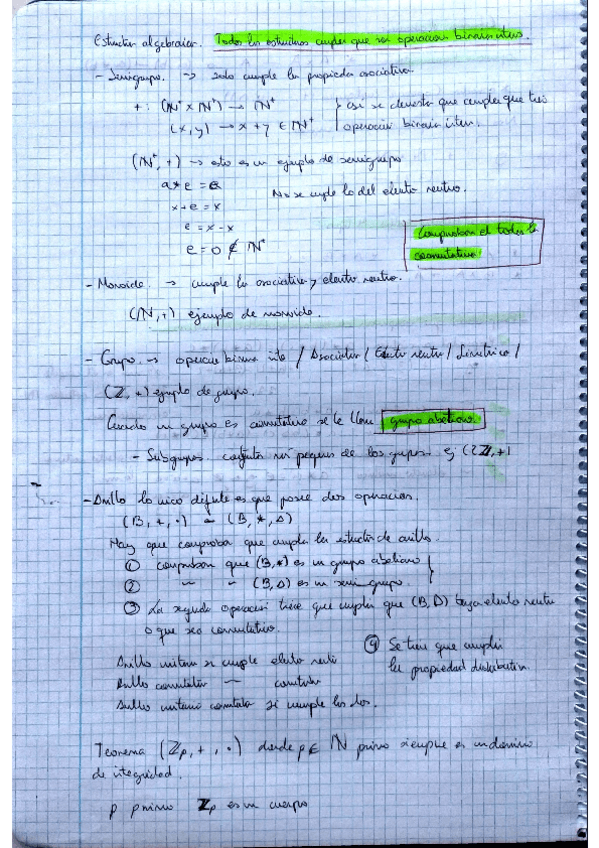 Estructuras algebraicas. Todas las estructuras cumplen que son operaciones binarias internas.
- Semigrupo. → solo cumple la propiedad asociativa.
+ : (ℕ⁺ x ℕ⁺) → ℕ⁺ } así se demuestra que cumplen que
(x, y) → x + y ∈ ℕ⁺ operacion binaria intern.
(ℕ⁺, +) → esto es un ejemplo de semigrupo
a * e = a
x + e = x No se cumple lo del elento neutro.
e = x - x
e = 0 ∉ ℕ⁺
Comprobar el todos la conmutativa
- Monoide. → cumple la asociativa y elento neutro.
(ℕ, +) ejemplo de monoide.
- Grupo. → operacion binaria inte / Asociativa / Elento neutro / Simetrico /
(ℤ, +) ejemplo de grupo.
Cuando un grupo es conmutativo se le llama grupo abeliano.
- Subgrupos. conjuntos mas pequeños de los grupos. ej (2ℤ, +)
- Anillo lo unico difente es que posee dos operacion.
(B, +, ·) (B, *, Δ)
Hay que comproba que cumple la estructur de anillo.
① comproban que (B, *) es un grupo abeliano
② " " (B, Δ) es un semigrupo.
③ La segunda operación tiene que cumplir que (B, Δ) tenga elento neutro
o que sea conmutativo.
④ Se tien que cumplir
la propiedad distributiva
Anillo unitario si cumple elento neutro
Anillo conmutativo " conmutativa
Anillo unitario conmutativo si cumple los dos.
Teorema (ℤp, +, ·) donde p ∈ ℕ primo siempre es un dominio
de integridad.
p primo ℤp es un cuerpo